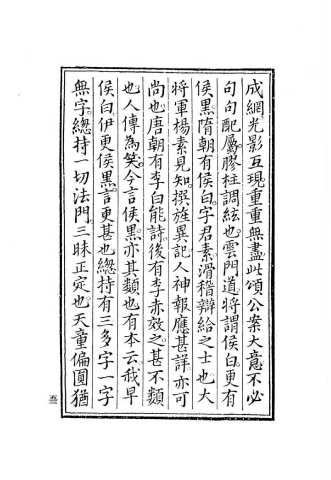 成網光影互現重重無盡此頌公案大意不必
句句配屬膠柱調絃也雲門道將謂侯白更有
侯黑隋朝有侯白字君素滑稽辯給之士也大
將軍楊素見知撰旌異記人神報應甚詳亦可
尚也唐朝有李白能詩後有李赤效之甚不類
也人傳為笑今言侯黑亦其類也有本云我早
侯白伊更侯黑言更甚也緫持有三多字一字
無字緫持一切法門三昧正定也天童偏圓猶
五